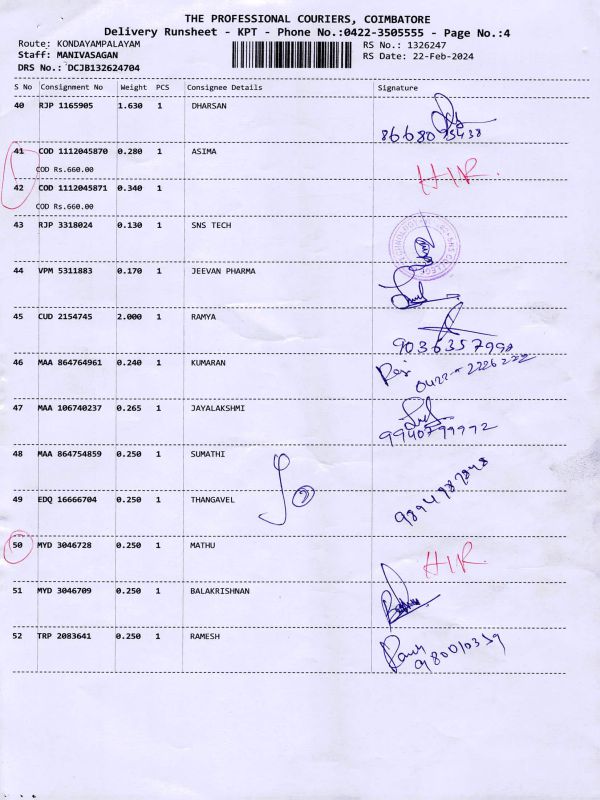 THE PROFESSIONAL COURIERS, COIMBATORE
Delivery Runsheet - KPT - Phone No.:0422-3505555 - Page No.:4
Route: KONDAYAMPALAYAM RS No.: 1326247
Staff: MANIVASAGAN RS Date: 22-Feb-2024
DRS No.: DCJB132624704
S No Consignment No Weight PCS Consignee Details Signature
40 RJP 1165905 1.630 1 DHARSAN
41 COD 1112045870 0.280 1 ASIMA
COD Rs.660.00
HIR.
42 COD 1112045871 0.340 1
COD Rs.660.00
43 RJP 3318024 0.130 1 SNS TECH
44 VPM 5311883 0.170 1 JEEVAN PHARMA
45 CUD 2154745 2.000 1 RAMYA
46 MAA 864764961 0.240 1 KUMARAN
47 MAA 106740237 0.265 1 JAYALAKSHMI
9940799972
48 MAA 864754859 0.250 1 SUMATHI
49 EDQ 16666704 0.250 1 THANGAVEL
9894987848
50 MYD 3046728 0.250 1 MATHU HIR.
51 MYD 3046709 0.250 1 BALAKRISHNAN
52 TRP 2083641 0.250 1 RAMESH